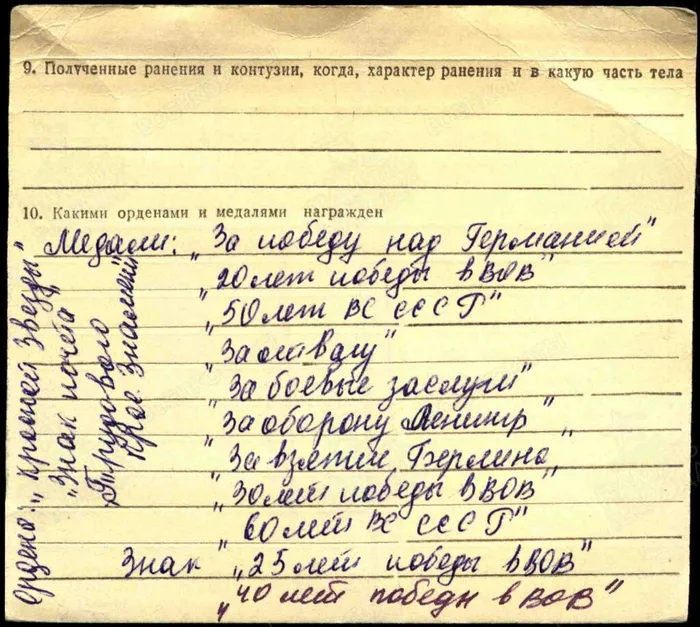 9. Полученные ранения и контузии, когда, характер ранения и в какую часть тела
10. Какими орденами и медалями награжден
Медали: „За победу над Германией"
„20 лет победы в ВОВ"
„50 лет ВС СССР"
„За отвагу"
„За боевые заслуги"
„За оборону Ленингр"
„За взятие Берлина„
„30 лет победы в ВОВ"
„60 лет ВС СССР"
Знак „25 лет победы в ВОВ"
„40 лет победы в ВОВ"
Ордена: „Красной Звезды"
„Знак почета"
„Трудового
Крас. Знамени"